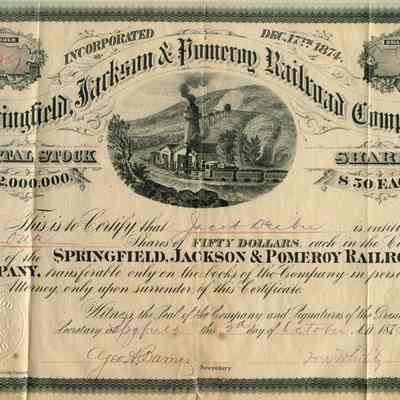 INCORPORATED DEC. 17TH 1874.
Springfield, Jackson & Pomeroy Railroad Comp
TAL STOCK SHAR
2,000,000. $50 EA
This is to Certify that Jacob is entit
Shares of FIFTY DOLLARS, each in the Ca
of the SPRINGFIELD, JACKSON & POMEROY RAILRO
MPANY, transferable only on the books of the Company in perso
Attorney, only upon surrender of this Certificate.
Witness the Seal of the Company and Signatures of the Presi
Secretary at Spgfield this 2nd day of October A.D. 187
Geo. H.
Secretary